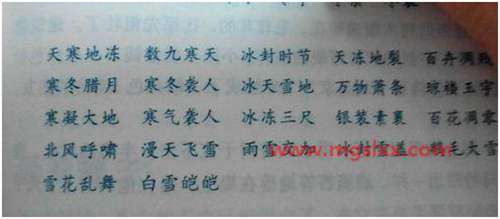 天寒地冻 数九寒天 冰封时节 天冻地裂 百卉凋残
寒冬腊月 寒冬袭人 冰天雪地 万物萧条 琼楼玉宇
寒凝大地 寒气袭人 冰冻三尺 银装素裹 百花凋零
北风呼啸 漫天飞雪 雨雪交加 冰川雪道 鹅毛大雪
www.mgshx.com
雪花乱舞 白雪皑皑